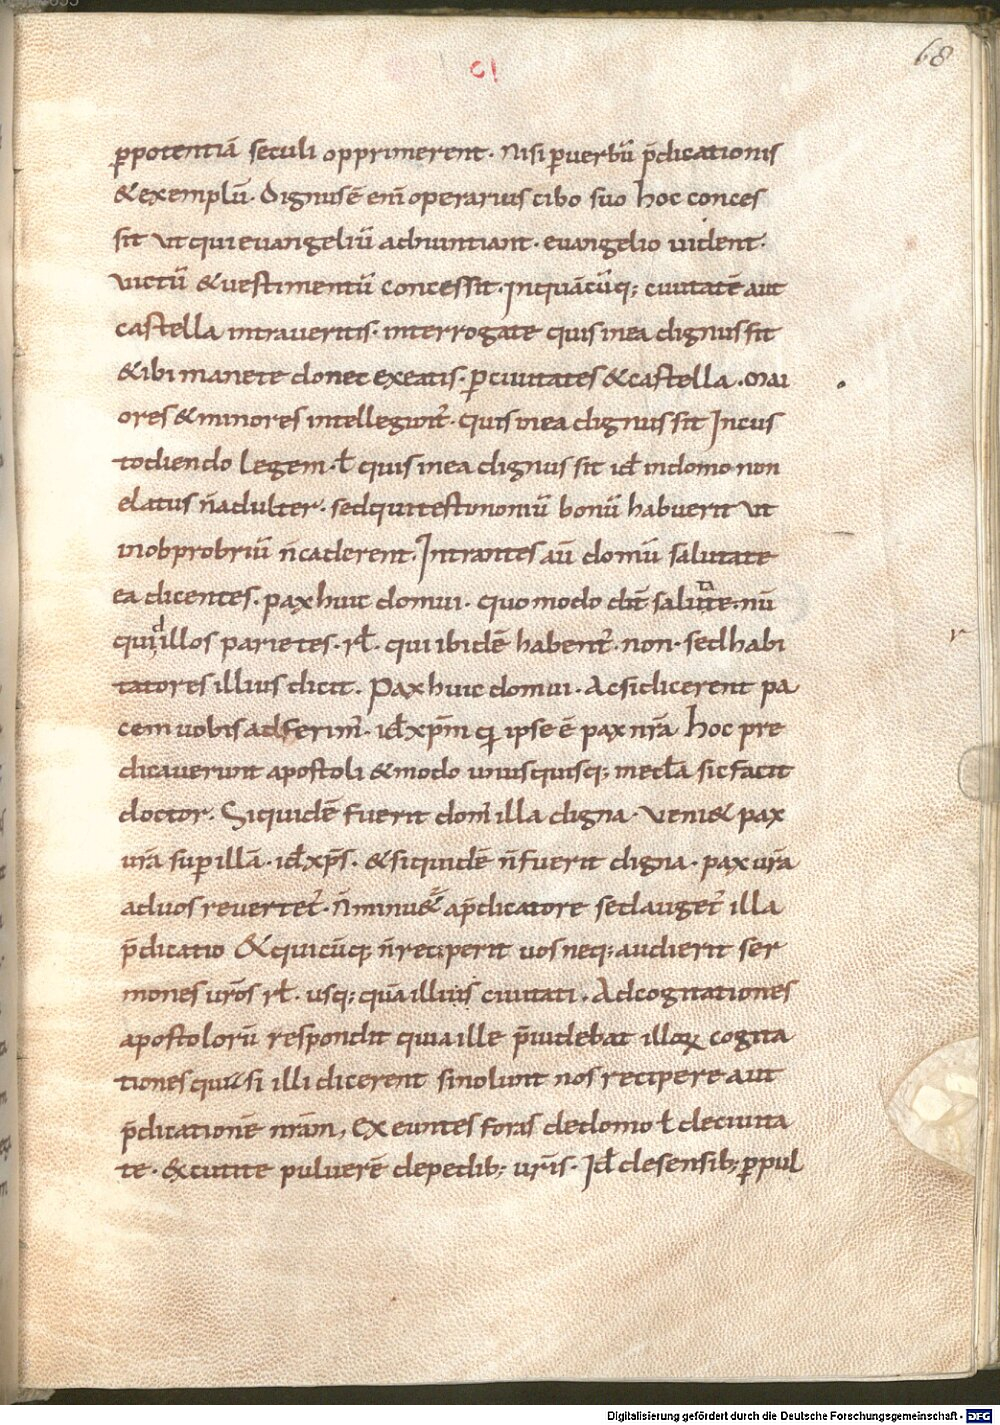 68
ꝑpotentiā seculi opprimerent · Nisi ꝑ uerbū p̄dicationis
& exemplū · Dignus ē eni̅ operarius cibo suo hoc conces
sit ut qui euangeliū adnuntiant · euangelio uident ·
uictū & uestimentū concessit · In quācūq; ciuitatē aut
castella intraueritis · interrogate quis in ea dignus sit
& ibi manete donec exeatis · ꝑ ciuitates & castella · mai
ores & minores intelleguntᷣ · quis in ea dignus sit In cus
todiendo legem · ł quis in ea dignus sit id̄ in domo non
elatus n̄ adulter · sed qui testimoniū bonū habuerit ut
in obprobriū n̄ caderent · Intrantes au̅ domū salutate
ea dicentes · pax huic domui · quo modo dn̄t salutate · nū
quid illos parietes · rł · qui ibidē habentᷣ · non · sed habi
tatores illius dicit · Pax huic domui · Ac si dicerent pa
cem uobis adferim᷒ · id̄ xp̄m qi ipse ē pax nr̄a hoc pre
dicauerunt apostoli & modo unusquisq; in eccła sic facit
doctor · Siquidē fuerit dom᷒ illa digna · Ueni& pax
ur̄a sup illā · id̄ xp̄s · & siquidē n̄ fuerit digna · pax ur̄a
ad uos reuertetᷣ · N̄ minu&ᷣ a p̄dicatore sed augetᷣ illa
p̄dicatio & quicūq; n̄ reciperit uos neq; audierit ser
mones ur̄os rł · usq; quā illius ciuitati · Ad cogitationes
apostolorū respondit quia ille p̄uidebat illoꝝ cogita
tiones qui si illi dicerent si nolunt nos recipere aut
p̄dicationē nr̄am, Exeuntes foras de domo ł de ciuita
te · excutite puluerē de pedib; ur̄is · Id̄ de sensib; ꝑ pul
Digitalisierung gefördert durch die Deutsche Forschungsgemeinschaft - DFG